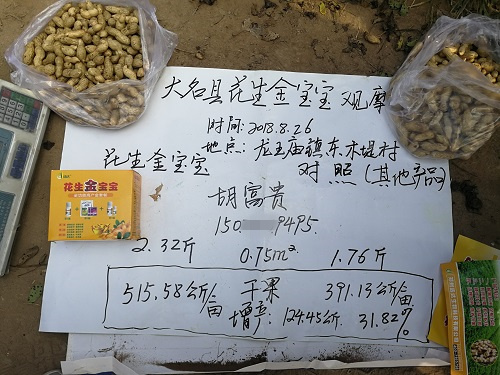 大名县花生金宝宝观摩
时间:2018.8.26
地点:龙王庙镇东木堤村
花生金宝宝
对照(其他产品)
胡富贵
150 9495.
2.32斤 0.75m² 1.76斤
515.58公斤/亩 干果 391.13公斤/亩
增产:124.45公斤. 31.82%
花生金宝宝